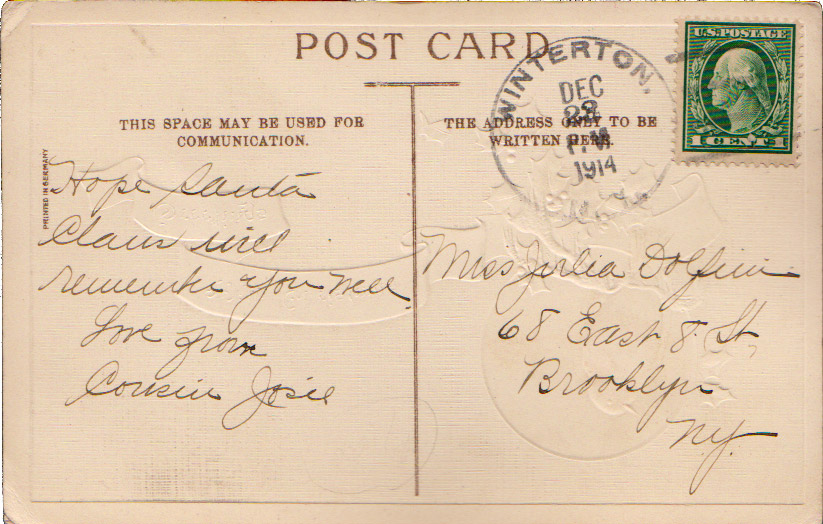 POST CARD
THIS SPACE MAY BE USED FOR
COMMUNICATION.
PRINTED IN GERMANY
Hope Santa
Claus will
remember you well.
Love from
Cousin Josie
THE ADDRESS ONLY TO BE
WRITTEN HERE.
WINTERTON,
DEC
P.M.
1914
N.Y.
U.S. POSTAGE
1 CENT 1
Miss Julia Dolfini
68 East 8. St,
Brooklyn
N.Y.